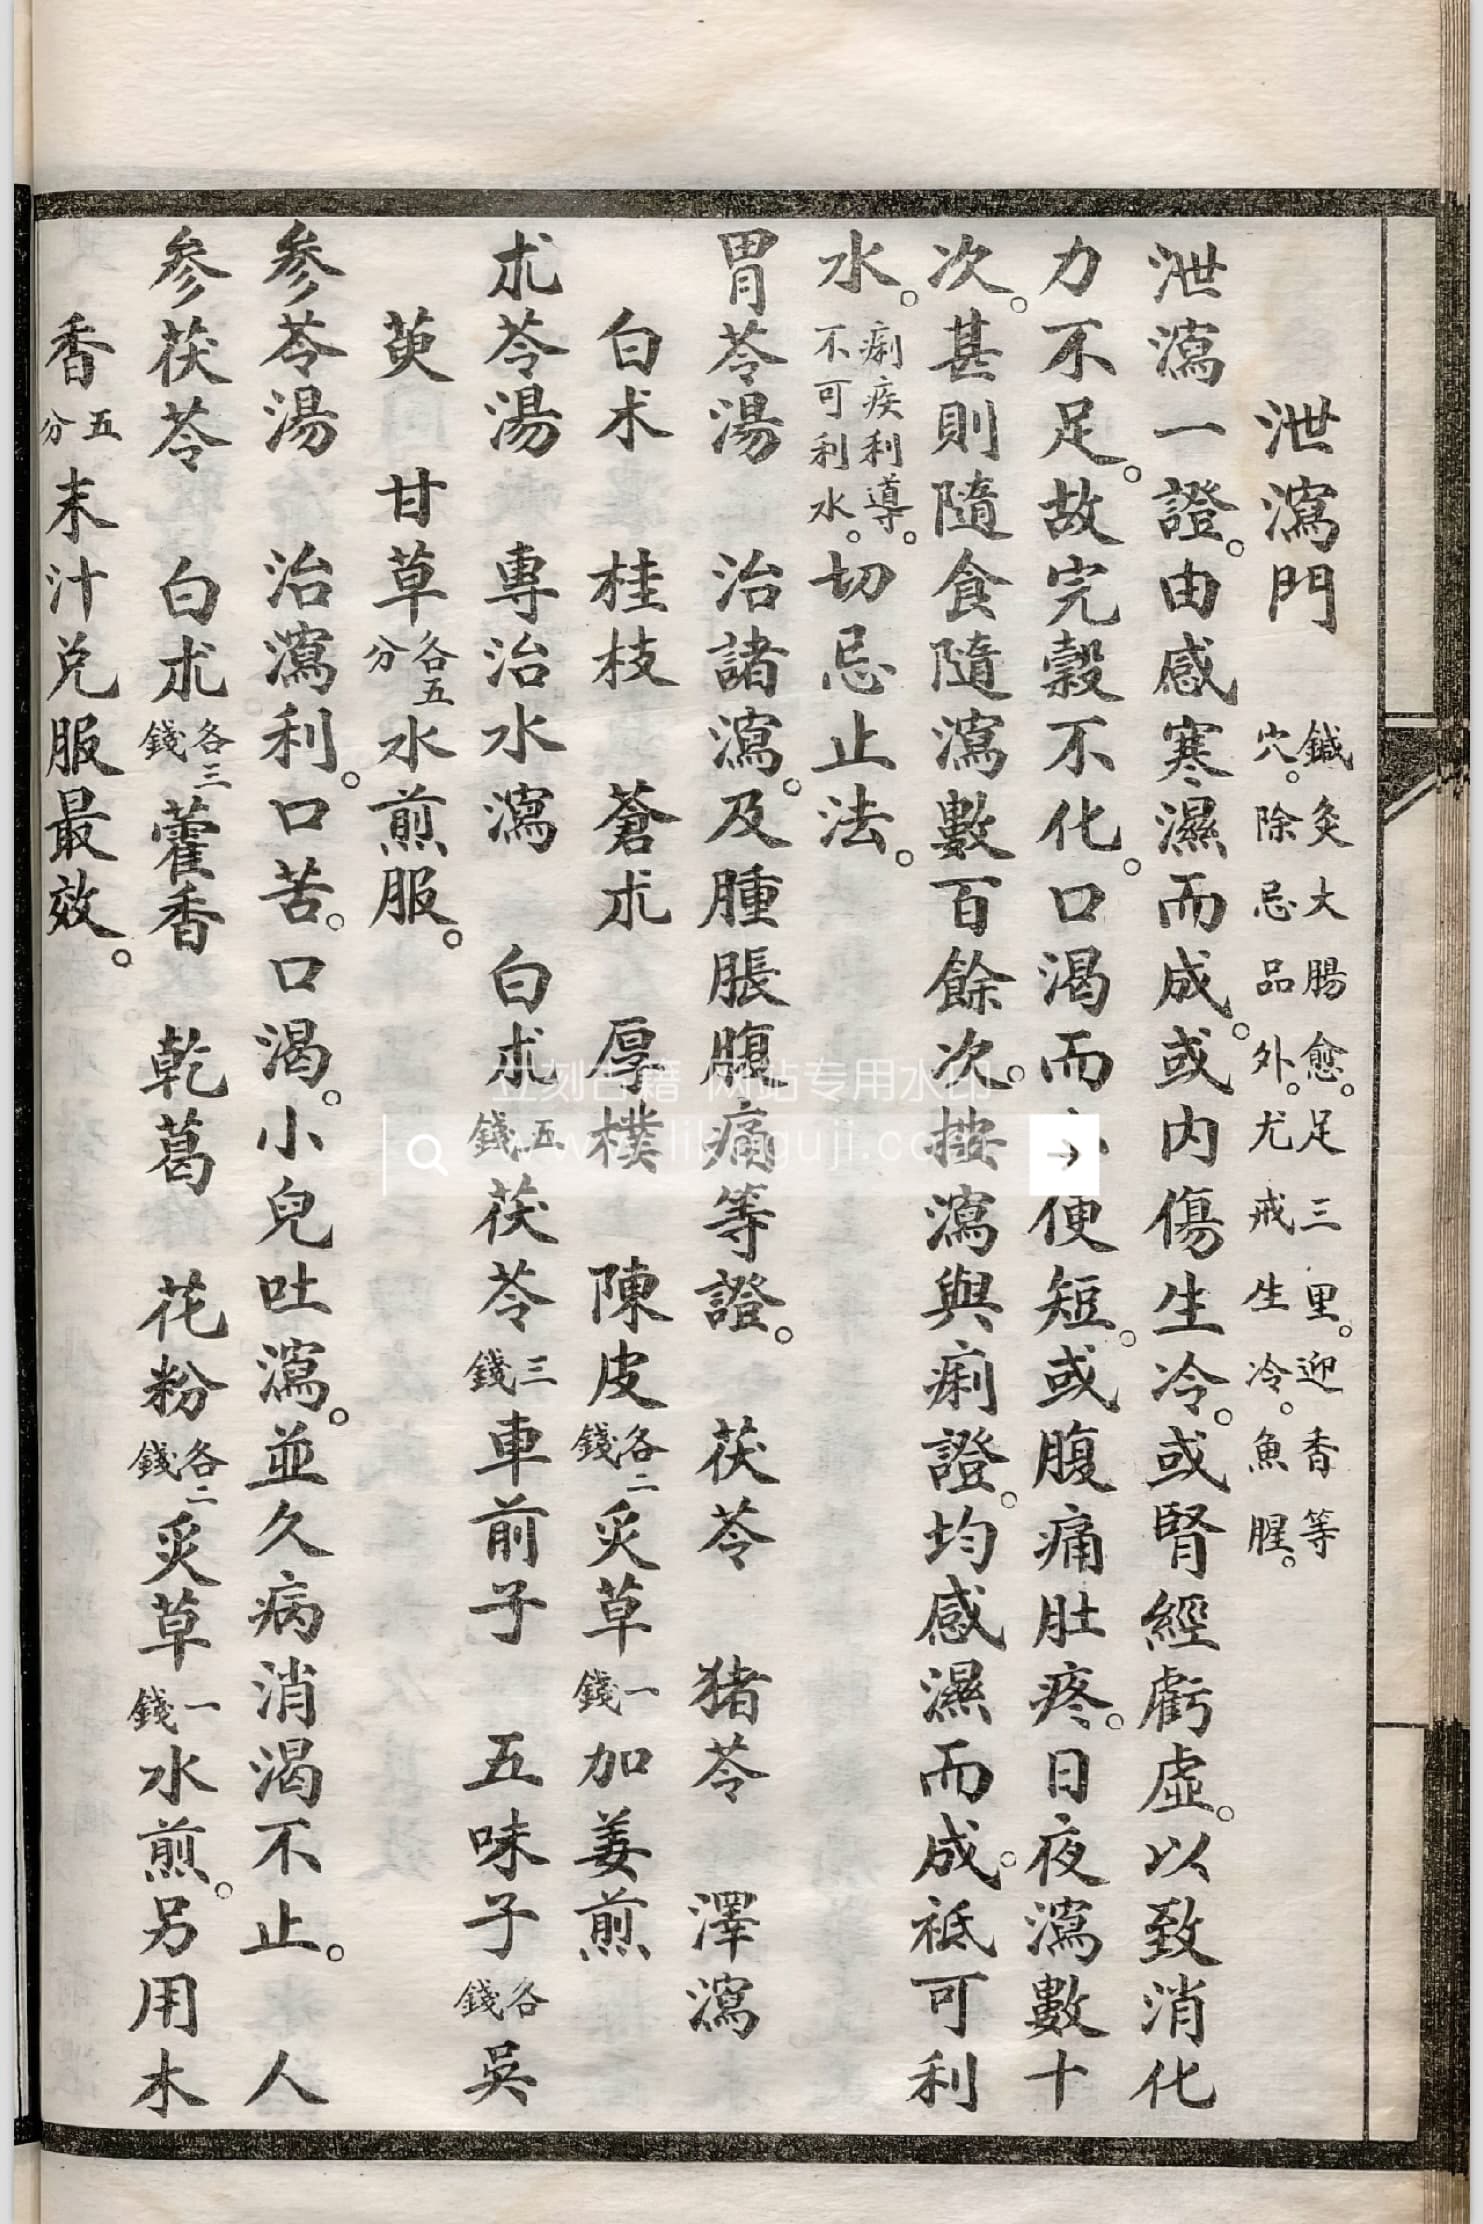 泄瀉門 鍼灸大腸愈。足三里。迎香等穴。除忌品外。尤戒生冷。魚腥。
泄瀉一證。由感寒濕而成。或内傷生冷。或腎經虧虛。以致消化
力不足。故完穀不化。口渴而小便短。或腹痛肚疼。日夜瀉數十
次。甚則隨食隨瀉數百餘次。按瀉與痢證。均感濕而成。祗可利
水。痢疾利導。不可利水。切忌止法。
胃苓湯 治諸瀉。及腫脹腹痛等證。 茯苓 猪苓 澤瀉
白朮 桂枝 蒼朮 厚樸 陳皮各二錢炙草一錢加姜煎
朮苓湯 專治水瀉 白朮五錢茯苓三錢車前子 五味子各錢吳
萸 甘草各五分水煎服。
參苓湯 治瀉利。口苦。口渴。小兒吐瀉。並久病消渴不止。 人
參茯苓 白朮各三錢藿香 乾葛 花粉各二錢炙草一錢水煎。另用木
香五分末汁兑服最效。
立刻古籍 网站专用水印
www.likeguji.com